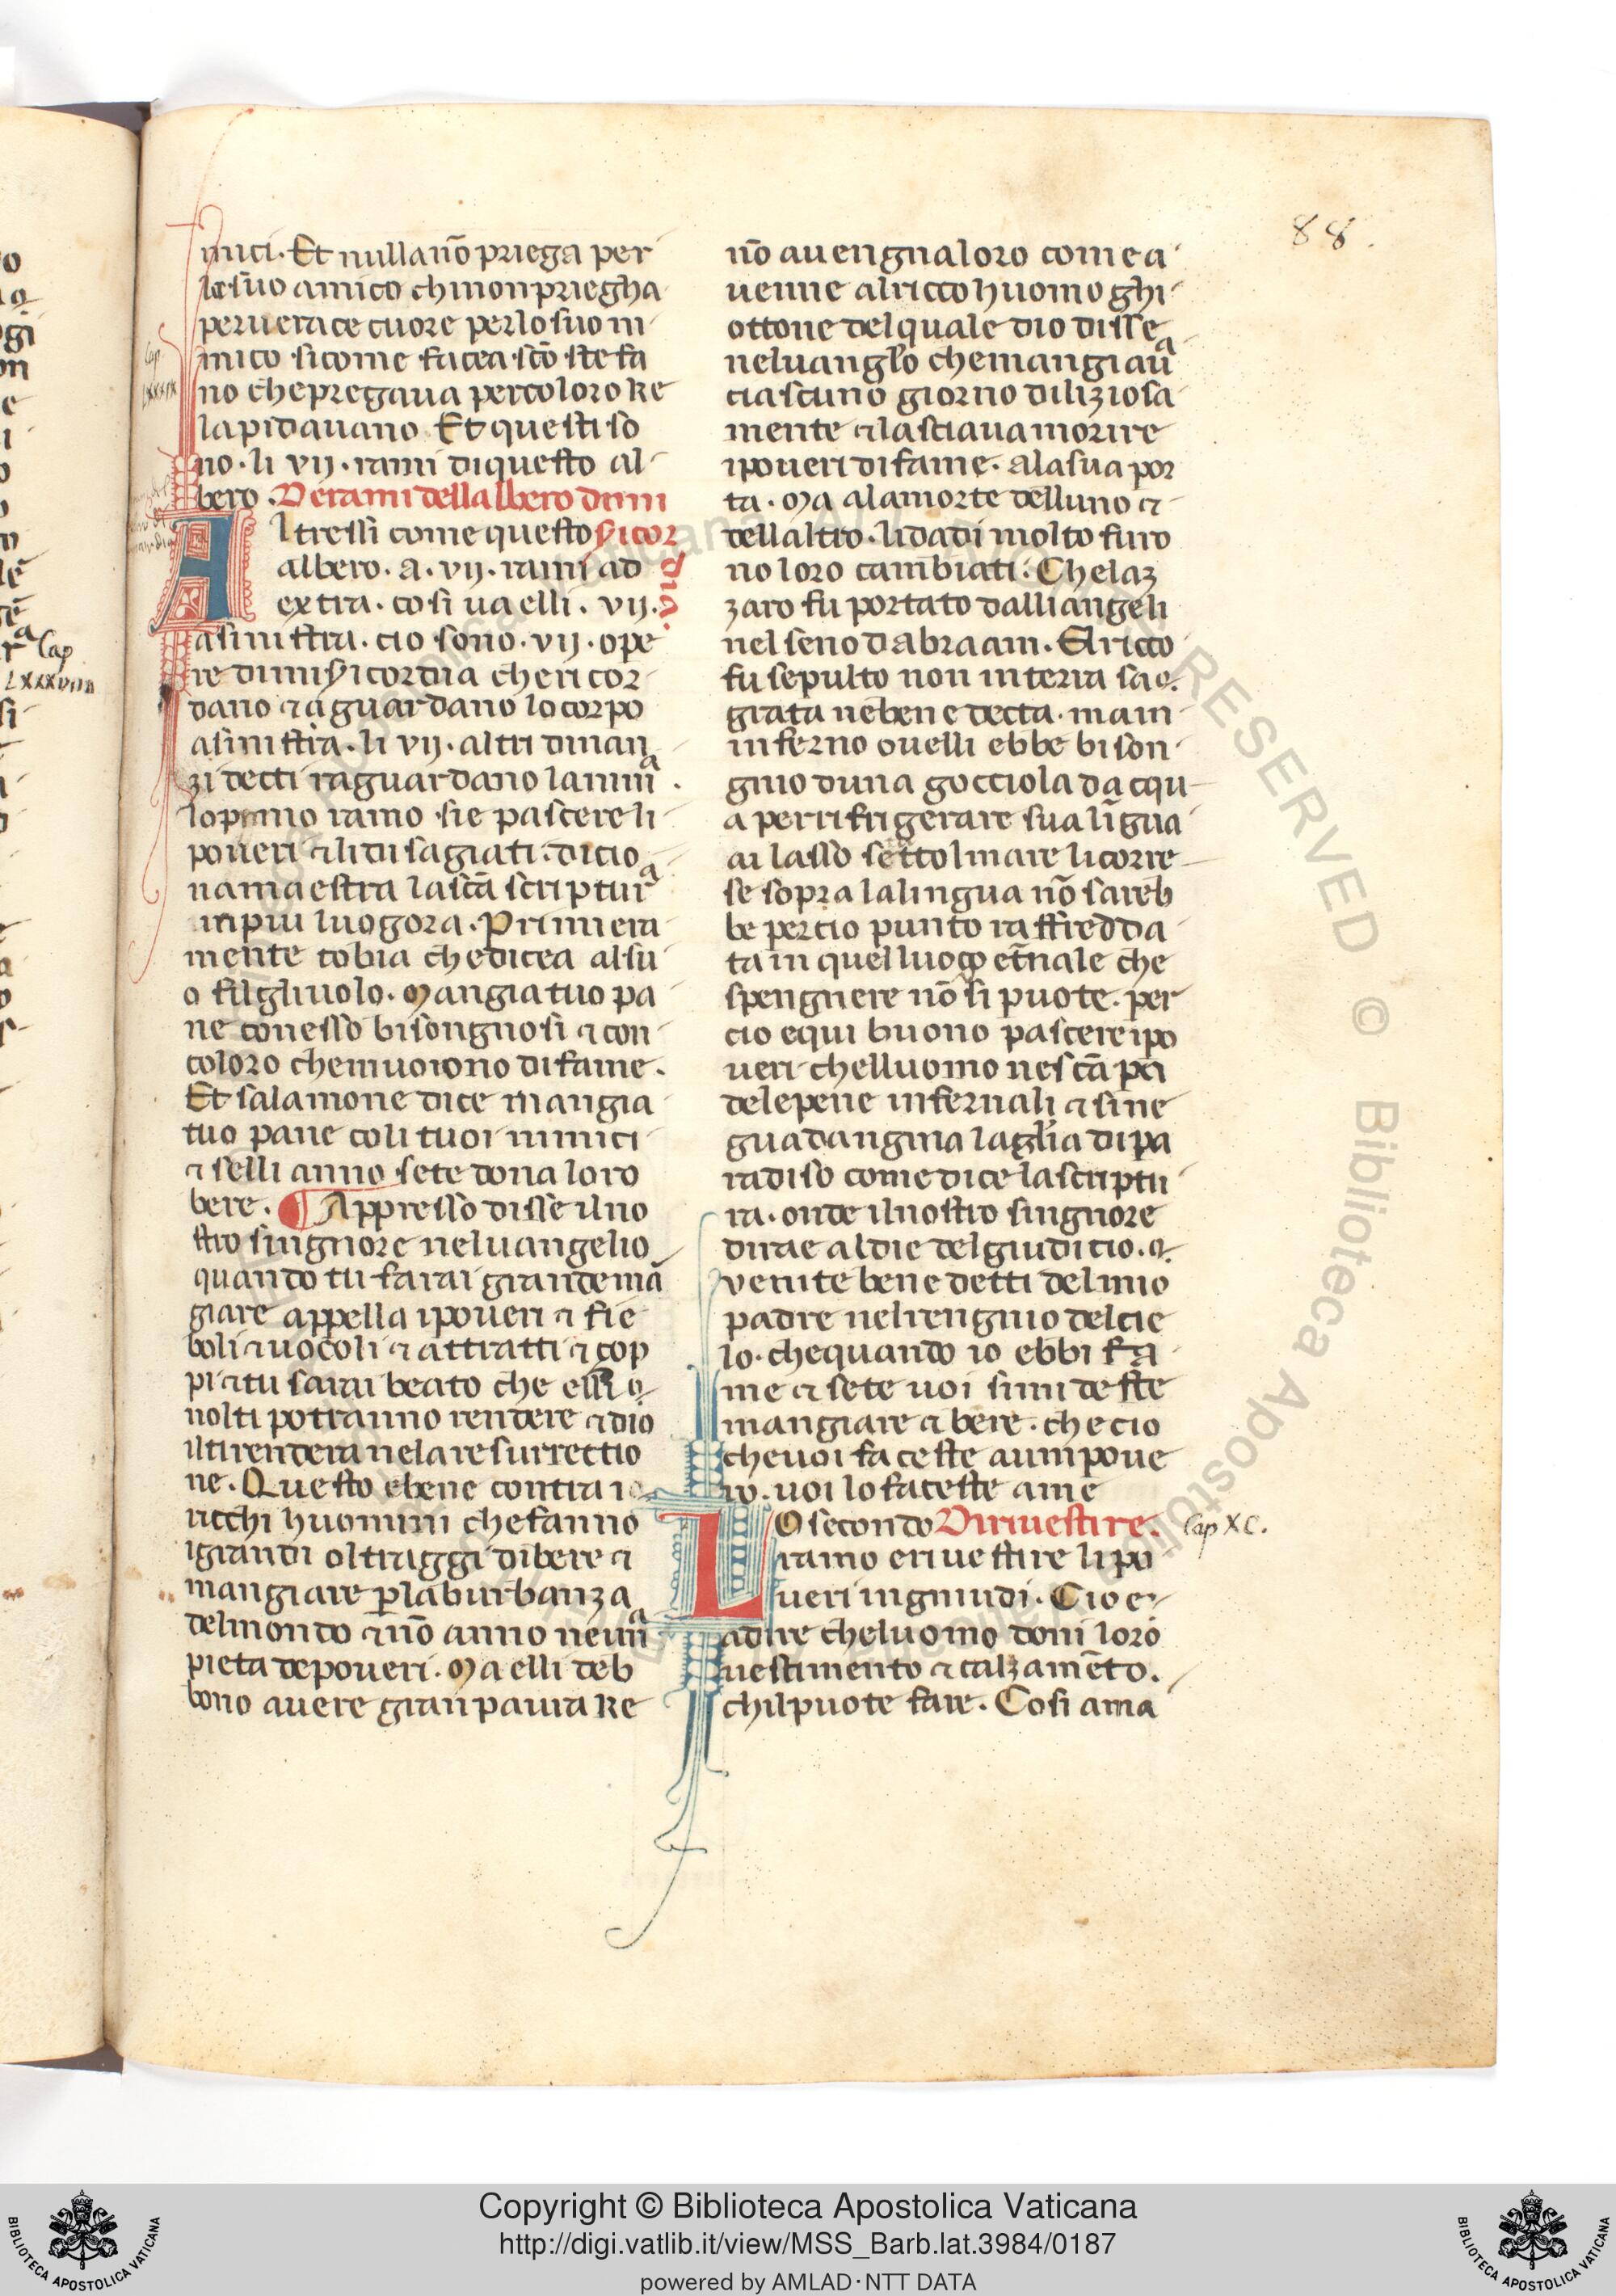 88.
mici. Et nulla nō priega per
lo suo amico chi non priegha
per verace cuore per lo suo ni
mico sicome facea scō stefa
no che pregava per coloro ke
lapidavano. Et questi so
no. li vij. rami di questo al
bero. De rami dell albero di mi
sicor
dia.
Altressi come questo
albero. a. vij. rami ad
extra. cosi va elli. vij.
a sinistra. cio sono. vij. ope
re di misicordia che ricor
dano ⁊ a guardano lo corpo
a sinistra. li vij. altri dinan
zi decti raguardano lanima.
lo primo ramo sie pascere li
poveri ⁊ li disagiati. di cio
namaestra la scā scriptura
in piu luogora. Primiera
mente tobia che dicea al su
o filgliuolo. Mangia tuo pa
ne con esso bisongnosi ⁊ con
coloro che muoiono di fame.
Et salamone dice mangia
tuo pane coli tuoi nimici
⁊ selli anno sete dona loro
bere. ¶ Appresso disse il no
stro singnore nel vangelio
quando tu farai grande mā
giare appella i poveri ⁊ fie
boli ⁊ vocoli ⁊ attratti ⁊ çop
pi ⁊ tu sarai beato che elli
nolti potranno rendere ⁊ dio
il ti rendera nela resurrectio
ne. Questo e bene contra i
ricchi huomini che fanno
i grandi oltraggi di bere ⁊
mangiare p la burbanza
del mondo ⁊ nō anno neuna
pieta de poveri. Ma elli deb
bono avere gran paura ke
nō avengna loro come a
venne al ricco huomo ghi
ottone del quale dio disse
nel vanglo che mangiava
ciascuno giorno diliziosa
mente ⁊ lasciava morire
i poveri di fame. ala sua por
ta. Ma ala morte delluno ⁊
dellaltro. li dadi molto furo
no loro cambiati. Che laz
zaro fu portato dalli angeli
nel seno dabraam. El ricco
fu sepulto non in terra sa
grata ne benedecta. ma in
inferno ovelli ebbe bison
gnio duna gocciola dacqu
a per rifrigerare sua līgua
ai lasso se ttol mare li corre
se sopra la lingua nō sareb
be percio punto raffredda
ta in quel luogo etnale che
spengnere nō si puote. per
cio e qui buono pascere i po
veri chelluomo ne scāpa
dele pene infernali ⁊ sine
guadangnia la glia di pa
radiso come dice la scriptu
ra. onde il nostro singnore
dirae al die del giudicio.
venite benedetti del mio
padre nel rengnio del cie
lo. che quando io ebbi fa
me ⁊ sete voi mi deste
mangiare ⁊ bere. che cio
che voi faceste a um pove
ro. voi lo faceste a me
LO secondo Di rivestire. Cap XC.
ramo e rivestire li po
veri ingniudi. Cio e
a dire che luomo doni loro
vestimento ⁊ calzamēto.
chil puote fare. Cosi ama
Cap
LXXXVIIII
Copyright © Biblioteca Apostolica Vaticana
http://digi.vatlib.it/view/MSS_Barb.lat.3984/0187
powered by AMLAD·NTT DATA
BIBLIOTECA APOSTOLICA VATICANA
BIBLIOTECA APOSTOLICA VATICANA